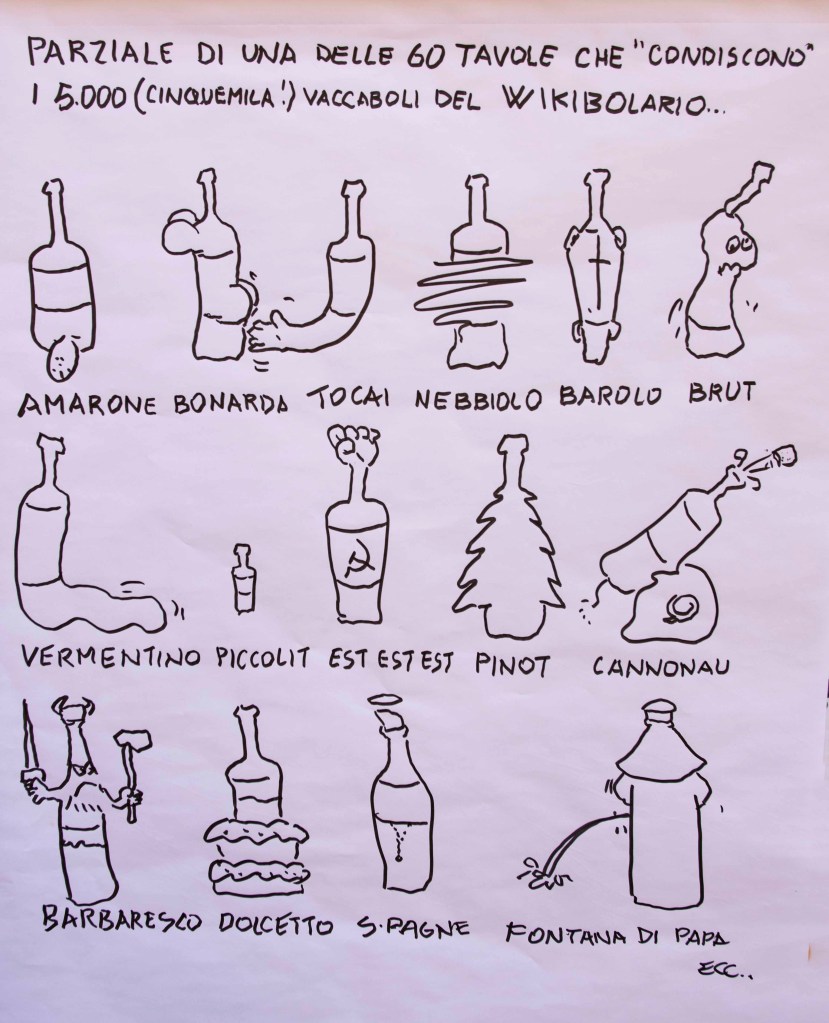 PARZIALE DI UNA DELLE 60 TAVOLE CHE "CONDISCONO"
I 5.000 (CINQUEMILA!) VACCABOLI DEL WIKIBOLARIO...
AMARONE BONARDA TOCAI NEBBIOLO BAROLO BRUT
VERMENTINO PICCOLIT EST EST EST PINOT CANNONAU
BARBARESCO DOLCETTO S.PAGNE FONTANA DI PAPA
ECC..